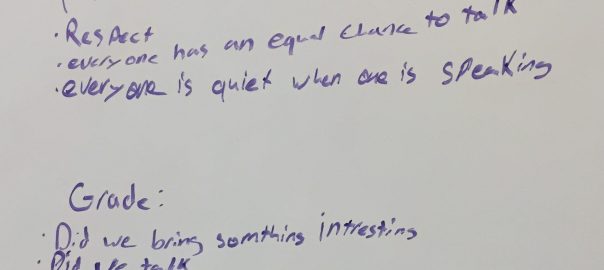 • Respect
• everyone has an equal chance to talk
• everyone is quiet when one is speaking
Grade:
• Did we bring somthing intresting
• Did we talk